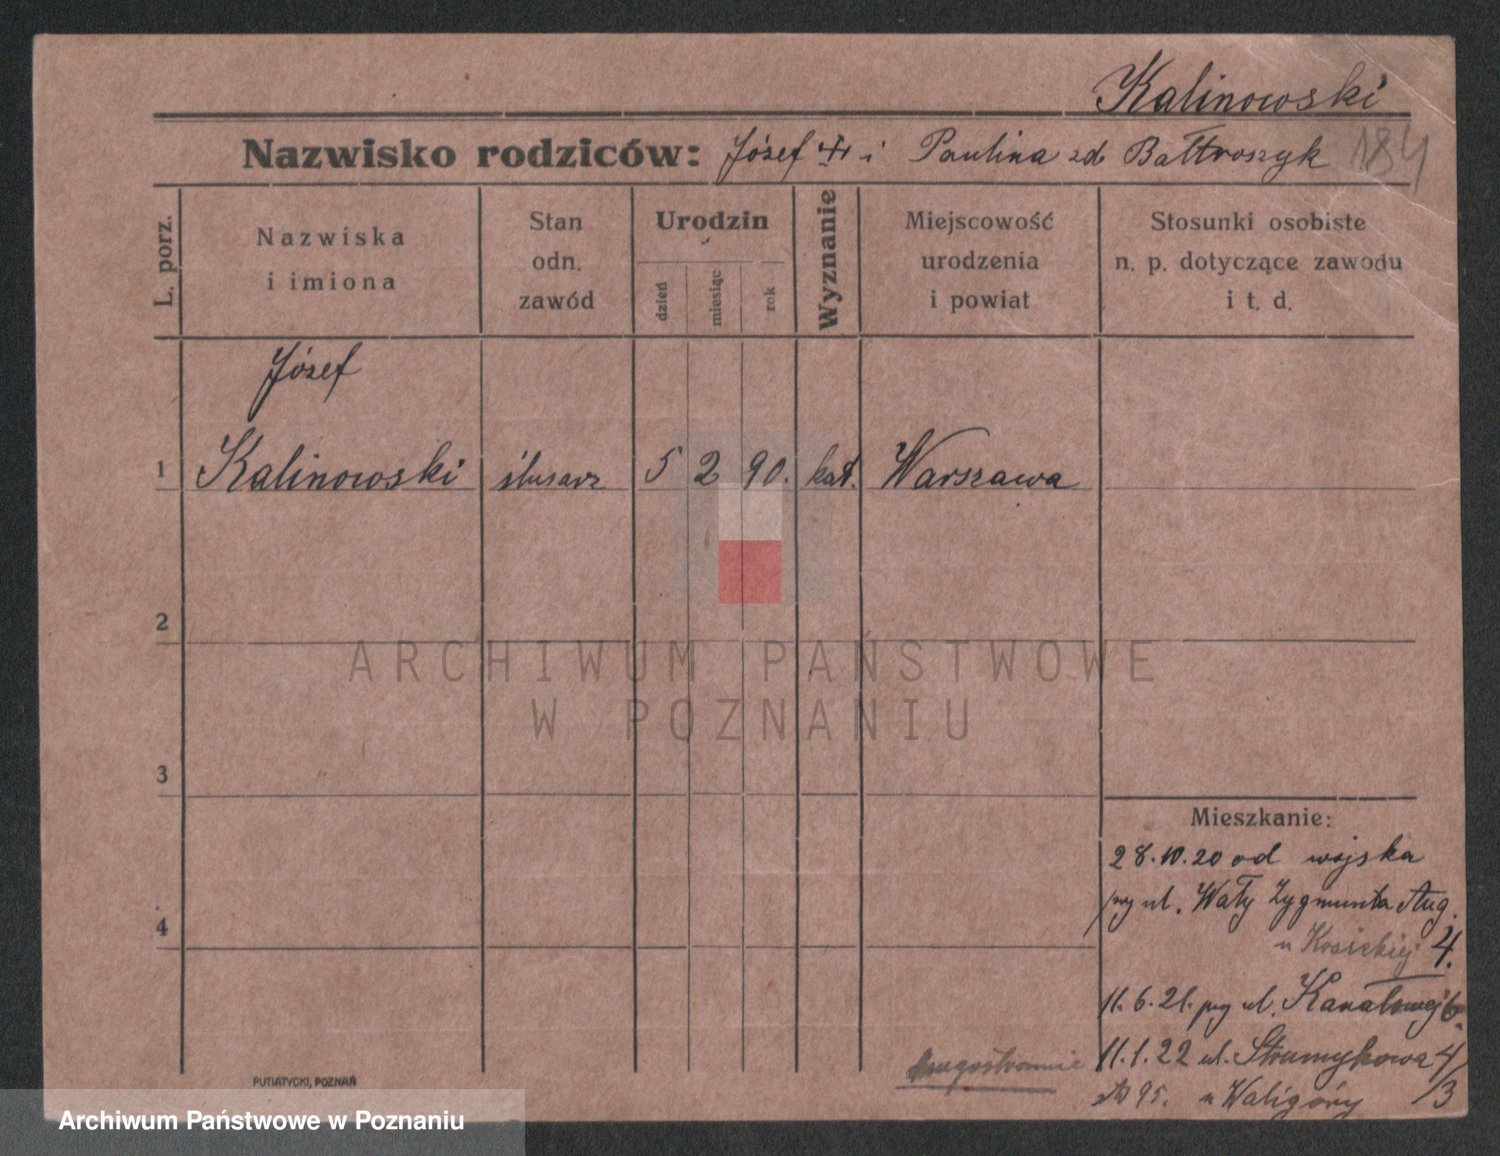 Kalinowski
Nazwisko rodziców: Józef i Paulina zd Bałtroszyk 184
L. porz.
Nazwiska
i imiona
Stan
odn.
zawód
Urodzin
dzień
miesiąc
rok
Wyznanie
Miejscowość
urodzenia
i powiat
Stosunki osobiste
n. p. dotyczące zawodu
i t. d.
Józef
1 Kalinowski ślusarz 5 2 90. kat. Warszawa
2
ARCHIWUM PAŃSTWOWE
W POZNANIU
3
Mieszkanie:
28.10.20 od wojska
ul. Wały Zygmunta Aug.
4
u Kosickiej 4.
11.6.21. ul. Kanałowej 6.
11.1.22 ul. Strumykowa 4/3
u Waligóry
PUTIATYCKI, POZNAŃ
Archiwum Państwowe w Poznaniu